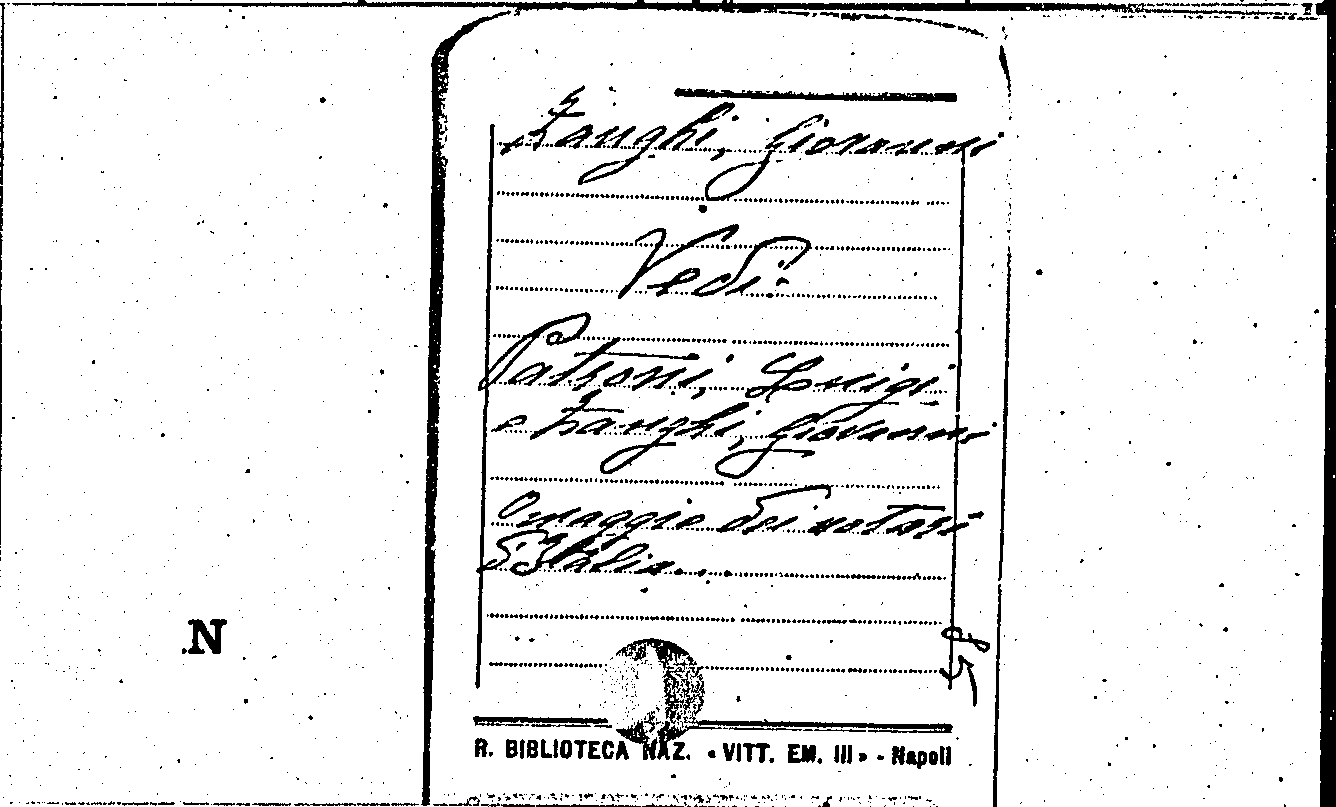 Zanghi, Giovanni
Vedi:
Patroni, Luigi
e Zanghi, Giovanni
Omaggio dei notari
d'Italia...
N
R. BIBLIOTECA NAZ. « VITT. EM. III » - Napoli